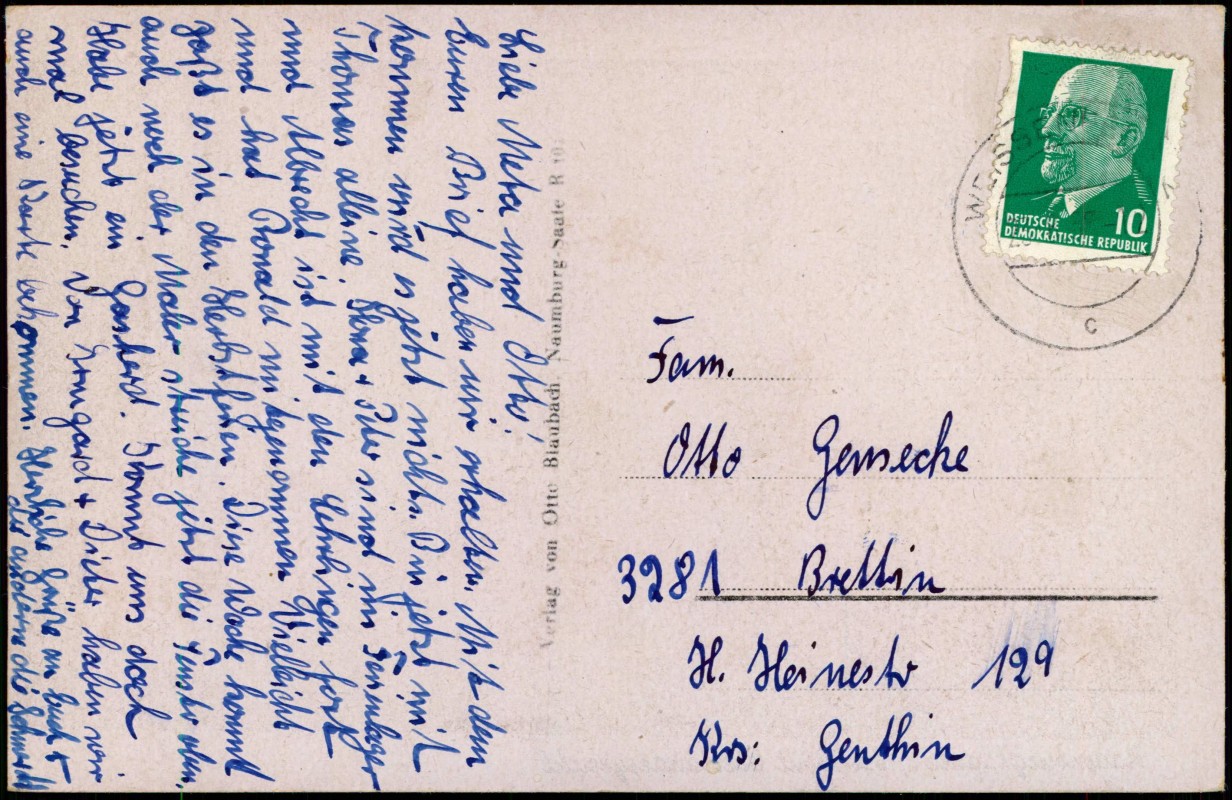 Liebe Meta und Otto!
Euren Brief haben wir erhalten. Mit den
kommen wird es jetzt nicht. Bin jetzt mit
Thomas alleine. Elena + Peter sind im Ferienlager
und Albrecht ist mit den Lehrlingen fort
und hat Ronald mitgenommen. Vielleicht
paßt es in den Herbstferien. Diese Woche kommt
auch noch der Maler streiche jetzt die Fenster oben.
Habe jetzt ein Gasherd. Kommt uns doch
mal besuchen. Von Irmgard + Dieter haben wir
auch eine Karte bekommen. Herzliche Grüße an Euch +
die anderen die Schmidt
Verlag von Otto Blaubach, Naumburg-Saale R 10.
DEUTSCHE
DEMOKRATISCHE REPUBLIK
10
c
Fam.
Otto Gensecke
3281 Brettin
H. Heinestr 129
Krs: Genthin